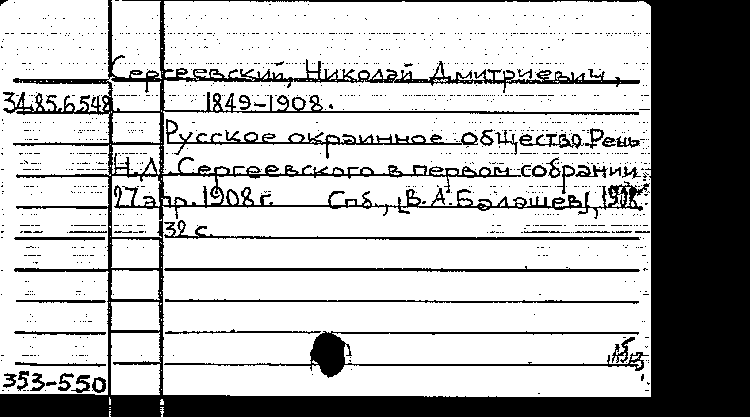 Сергеевский, Николай Дмитриевич,
34.85.6.548. 1849-1908.
Русское окраинное общество. Речь
Н.Д. Сергеевского в первом собрании
27 апр. 1908 г. Спб., [В.А. Балашев], 1908.
32 с.
353-550